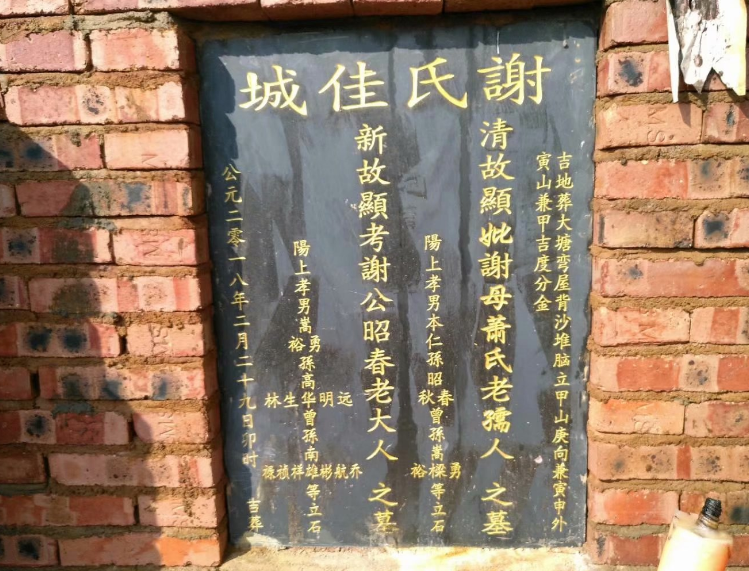 謝氏佳城
吉地葬大塘弯屋背沙堆脑立甲山庚向兼寅申外
寅山兼甲吉度分金
清故顯妣謝母蕭氏老孺人之墓
陽上孝男本仁孫昭春秋曾孫嵩樑勇裕等立石
新故顯考謝公昭春老大人之墓
陽上孝男嵩勇裕孫高华明生远林曾孫南雄彬航乔祥祯禄等立石
公元二零一八年二月二十九日卯时 吉葬